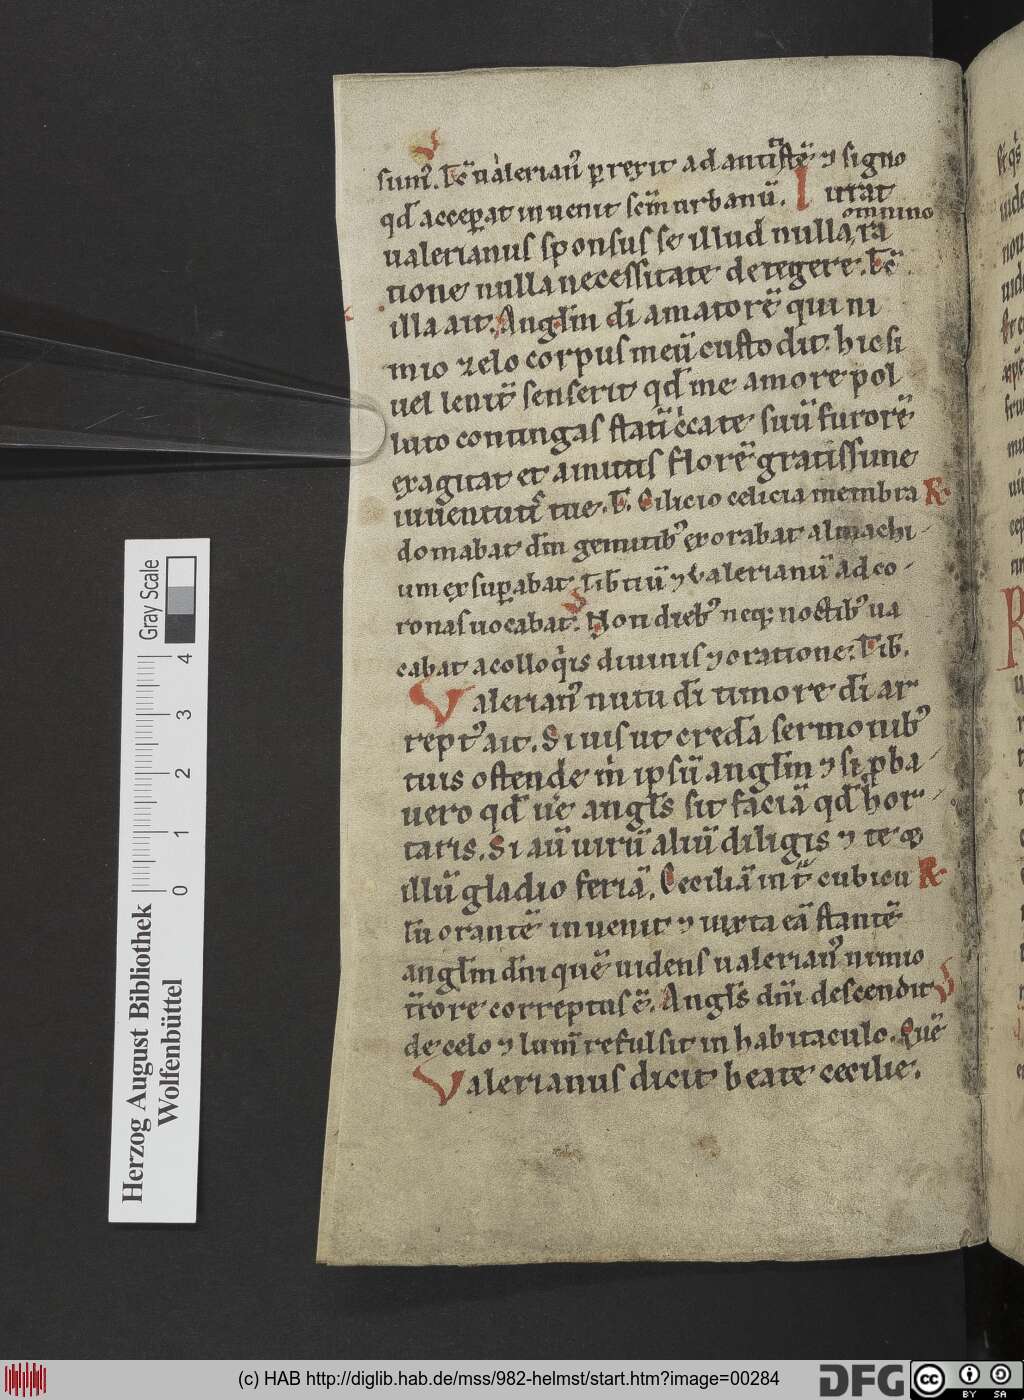 sum᷒. Tc̄ ualerian᷒ ꝑrexit ad antistitē ⁊ signo
qđ acceꝑat inuenit sc̄m urbanū. Iurat
omnino
ualerianus sponsus se illud nulla ra
tione nulla necessitate detegere. Tc̄
illa ait. Angl̄m dī amatorē qui ni
mio zelo corpus meū custodit. hic si
uel leuit᷒ senserit qđ me amore pol
luto contingas statī c̄cate suū furorē
exagitat et amittis florē gratissime
iuuentutis tue. V. Cilicio cecilia membra R
domabat dm̄ gemitib᷒ exorabat almachi
um exsuꝑabat. Tib̄tiū ⁊ Valerianū ad co
ronas uocabat. V Non dieb᷒ neq; noctib᷒ ua
cabat a colloq̇is diuinis ⁊ oratione. Tib̄.
Valerian᷒ nutu dī timore dī ar
rept᷒ ait. Si uis ut credā sermonib᷒
tuis ostende m̄ ipsū angl̄m ⁊ si ꝓba
uero qđ ue᷒ angl̄s sit faciā qđ hor
taris. Si aū uirū aliū diligis ⁊ te ⁊
illū gladio feriā. Ceciliā int᷒ cubicu R
lū orantē inuenit ⁊ iuxta eā stantē
angl̄m dn̄i quē uidens ualerian᷒ nimio
t᷒rore correptus ē. Angl̄s dn̄i descendit V
de celo ⁊ lum̄ refulsit in habitaculo. Quē
Valerianus dicit beate cecilie.
Gray Scale
4
3
2
1
0
Herzog August Bibliothek
Wolfenbüttel
(c) HAB http://diglib.hab.de/mss/982-helmst/start.htm?image=00284
DFG
cc
BY SA